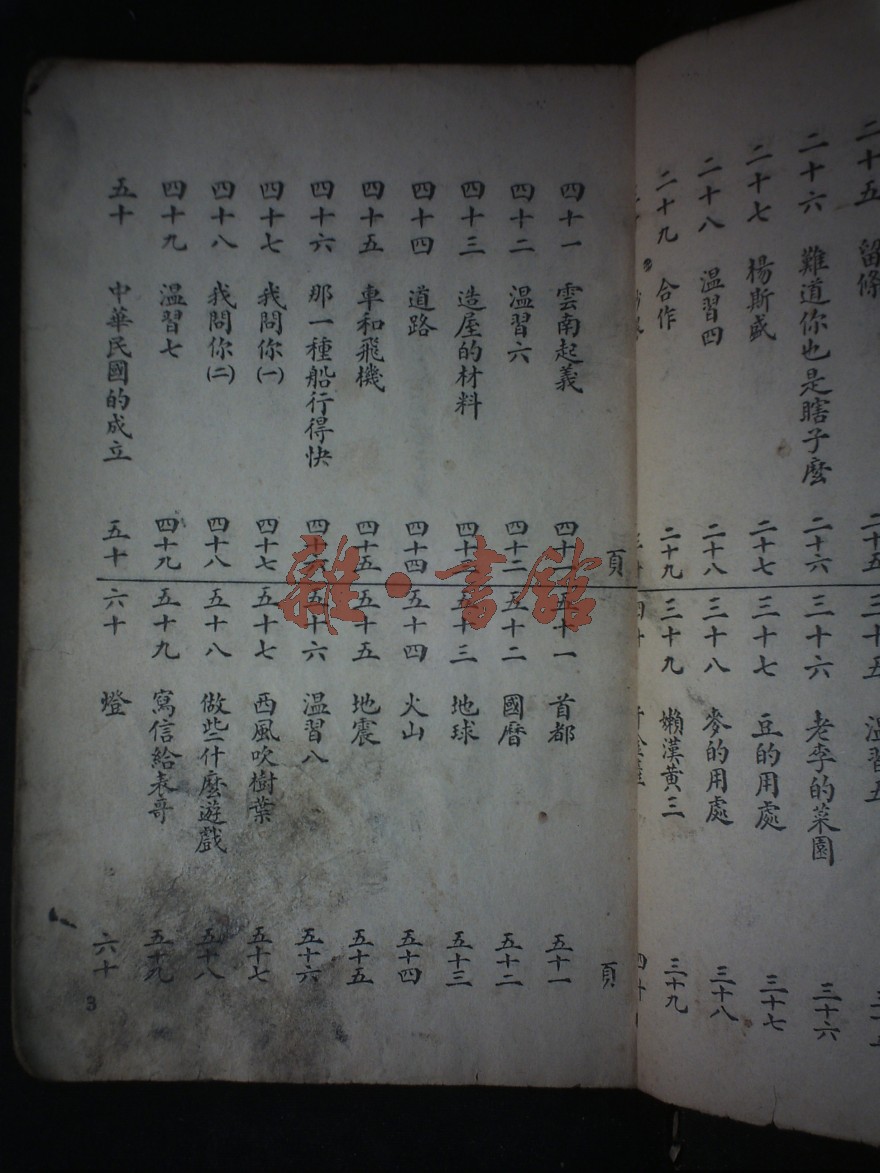 二十五 留條 二十五
二十六 難道你也是瞎子麽 二十六
二十七 楊斯盛 二十七
二十八 温習四 二十八
二十九 合作 二十九
三十五 温習五
三十六 老李的菜園 三十六
三十七 豆的用處 三十七
三十八 麥的用處 三十八
三十九 嬾漢黃三 三十九
四十 四十
頁
四十一 雲南起義 四十一
四十二 温習六 四十二
四十三 造屋的材料 四十三
四十四 道路 四十四
四十五 車和飛機 四十五
四十六 那一種船行得快 四十六
四十七 我問你(一) 四十七
四十八 我問你(二) 四十八
四十九 温習七 四十九
五十 中華民國的成立 五十
頁
五十一 首都 五十一
五十二 國曆 五十二
五十三 地球 五十三
五十四 火山 五十四
五十五 地震 五十五
五十六 温習八 五十六
五十七 西風吹樹葉 五十七
五十八 做些什麽遊戲 五十八
五十九 寫信給表哥 五十九
六十 燈 六十
3
雜·書館